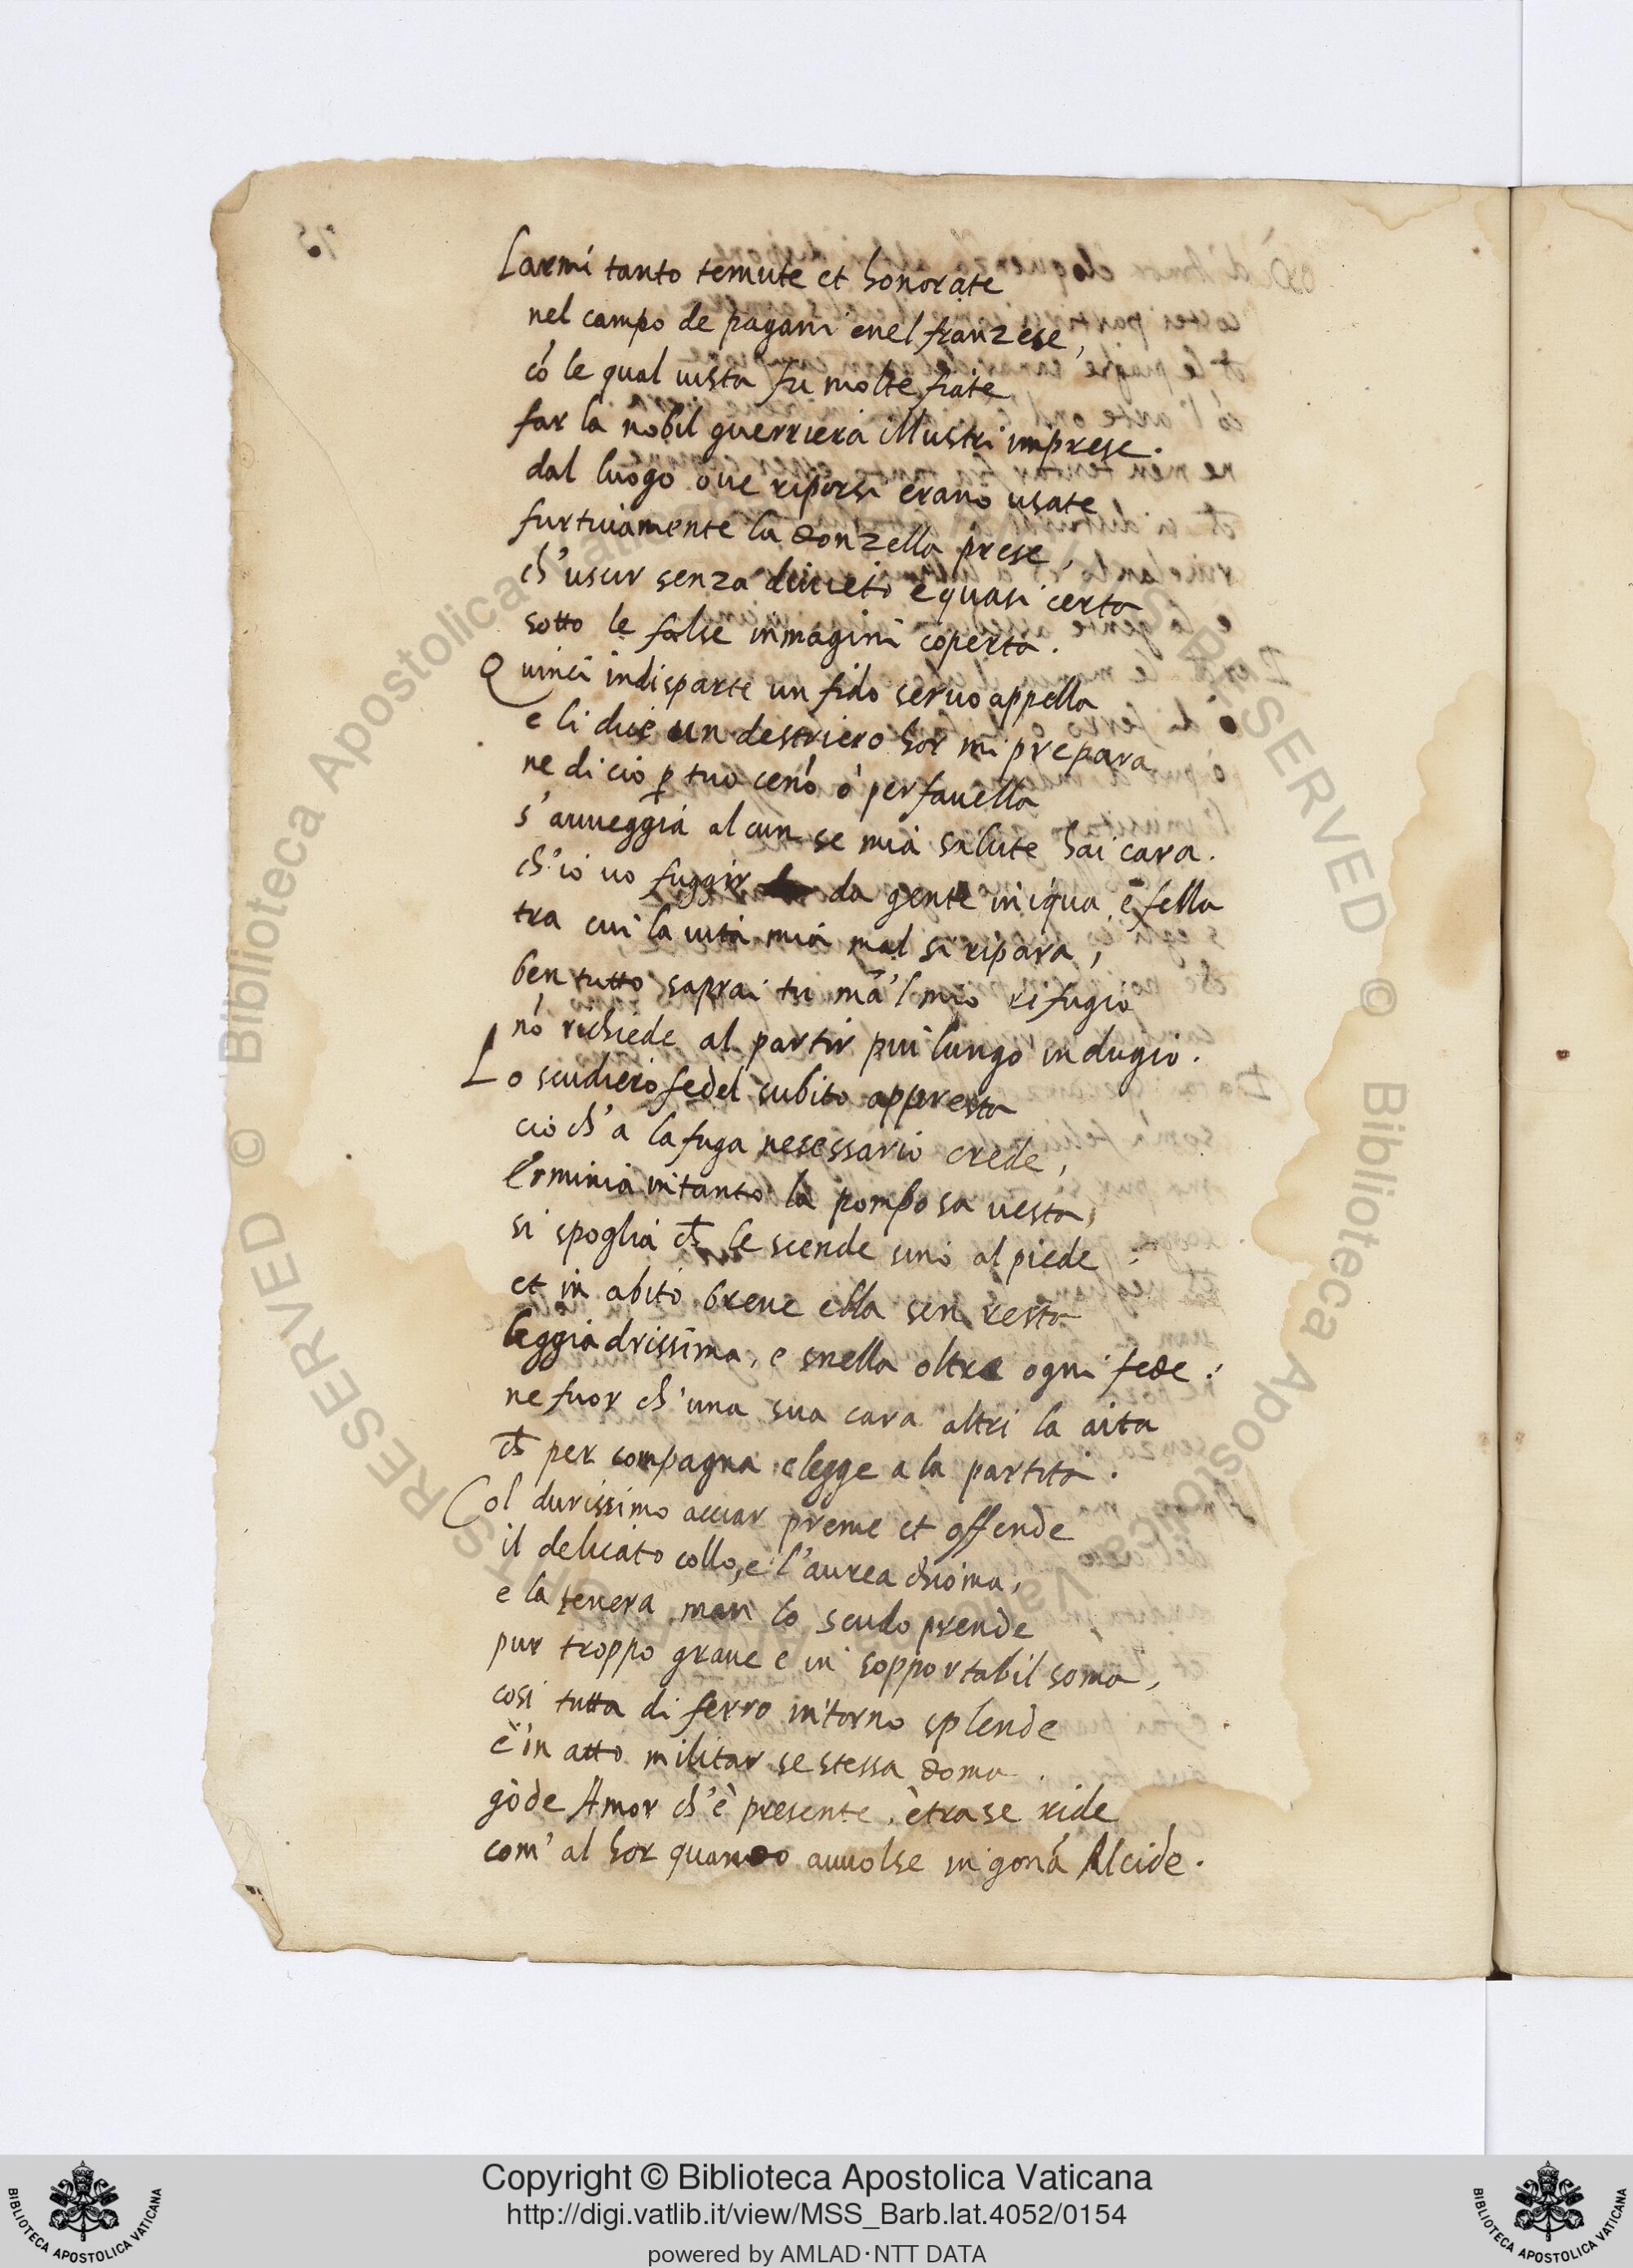 Larmi tanto temute et honorate
nel campo de pagani enel franzese,
cō le qual uista fu molte fiate
far la nobil guerriera illustri imprese.
dal luogo oue riporsi erano usate
furtiuamente la donzella prese,
ch'uscir senza diuieto è quasi certa
sotto le false inmagini coperta.
Quinci indisparte un fido seruo appella
e li dice un destriero hor mi prepara
ne di cio ꝑ tuo cenō ò per fauella
s'auueggia alcun se mia salute hai cara.
ch'io uo fuggir da gente iniqua e fella
tra cui la uita mia mal si ripara,
ben tutto saprai tu ma'l mio refugio
nō richiede al partir piu lungo indugio.
Lo scudiero fedel subito appresta
cio ch'a la fuga nesessario crede,
Erminia intanto la pomposa uesta,
si spoglia ch̄ le scende sino al piede:
et in abito breue ella sen resta
leggiadrissima, e snella oltre ogni fede:
ne fuor ch'una sua cara altri la aita
ch̄ per compagna elegge a la partita.
Col durissimo acciar preme et offende
il delicato collo, e l'aurea chioma,
e la tenera man lo scudo prende
pur troppo graue e in sopportabil soma,
cosi tutta di ferro intorno splende
e'in atto militar se stessa doma.
gode Amor ch'è presente, è tra se ride
com' al hor quando auuolse in gonā Alcide.
Copyright © Biblioteca Apostolica Vaticana
http://digi.vatlib.it/view/MSS_Barb.lat.4052/0154
powered by AMLAD·NTT DATA
BIBLIOTECA APOSTOLICA VATICANA
BIBLIOTECA APOSTOLICA VATICANA